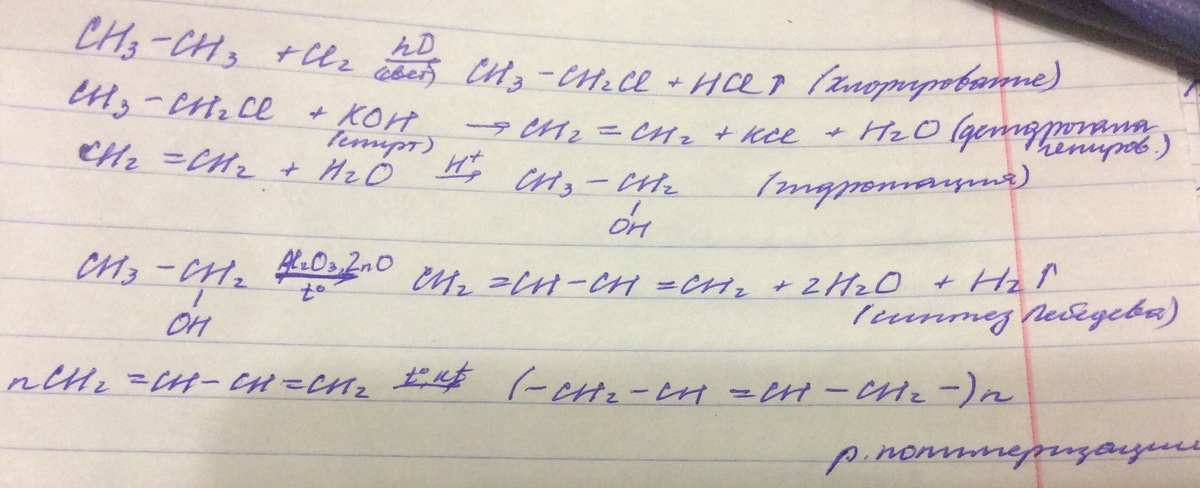 CH₃ – CH₃ + Cl₂ hν (свет) → CH₃ – CH₂Cl + HCl↑ (хлорирование)
CH₃ – CH₂Cl + KOH (спирт) → CH₂ = CH₂ + KCl + H₂O (дегидрогалагениров.)
CH₂ = CH₂ + H₂O H⁺ → CH₃ – CH₂ (гидротация)
OH
CH₃ – CH₂ Al₂O₃, ZnO t° → CH₂ = CH – CH = CH₂ + 2H₂O + H₂↑
OH (синтез Лебедева)
nCH₂ = CH – CH = CH₂ t°, kt → (– CH₂ – CH = CH – CH₂ –)n
р. полимеризации